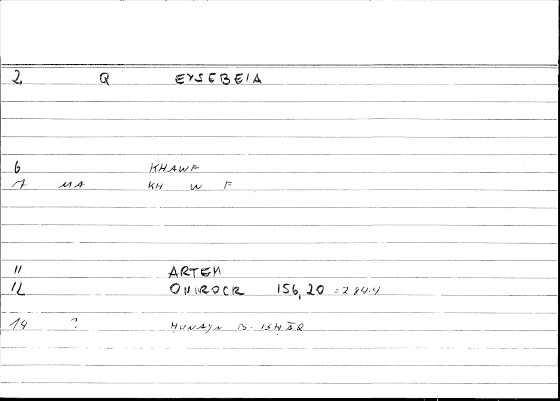 2 Q EYSEBEIA
6 KHAWF
7 MA KH W F
11 ARTEM
12 ONIROCR 156,20 = 284.4
14 ? HUNAYN B. ISHĀQ